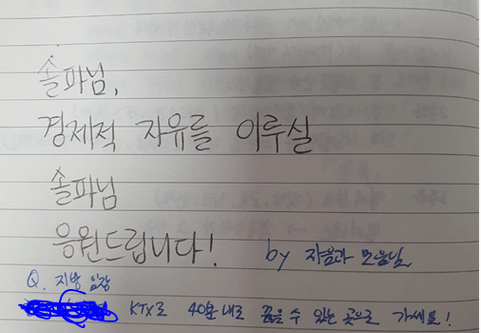 솔파님,
경제적 자유를 이루실
솔파님
응원드립니다! by 자음과 모음님
Q. 지방 임장
KTX로 40분내로 끊을 수 있는 곳으로 가세요!